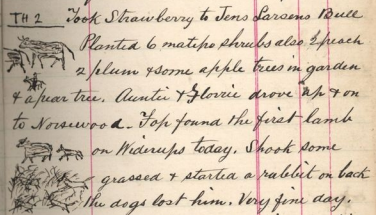 TH 2 Took Strawberry to Jens Larsens Bull
Planted 6 matipo shrubs also 2 peach
2 plum & some apple trees in garden
& a pear tree. Auntie & Florrie drove up & on
to Norsewood. Top found the first lamb
on Widerups today. Shook some
grassed & started a rabbit on back
the dogs lost him. Very fine day.